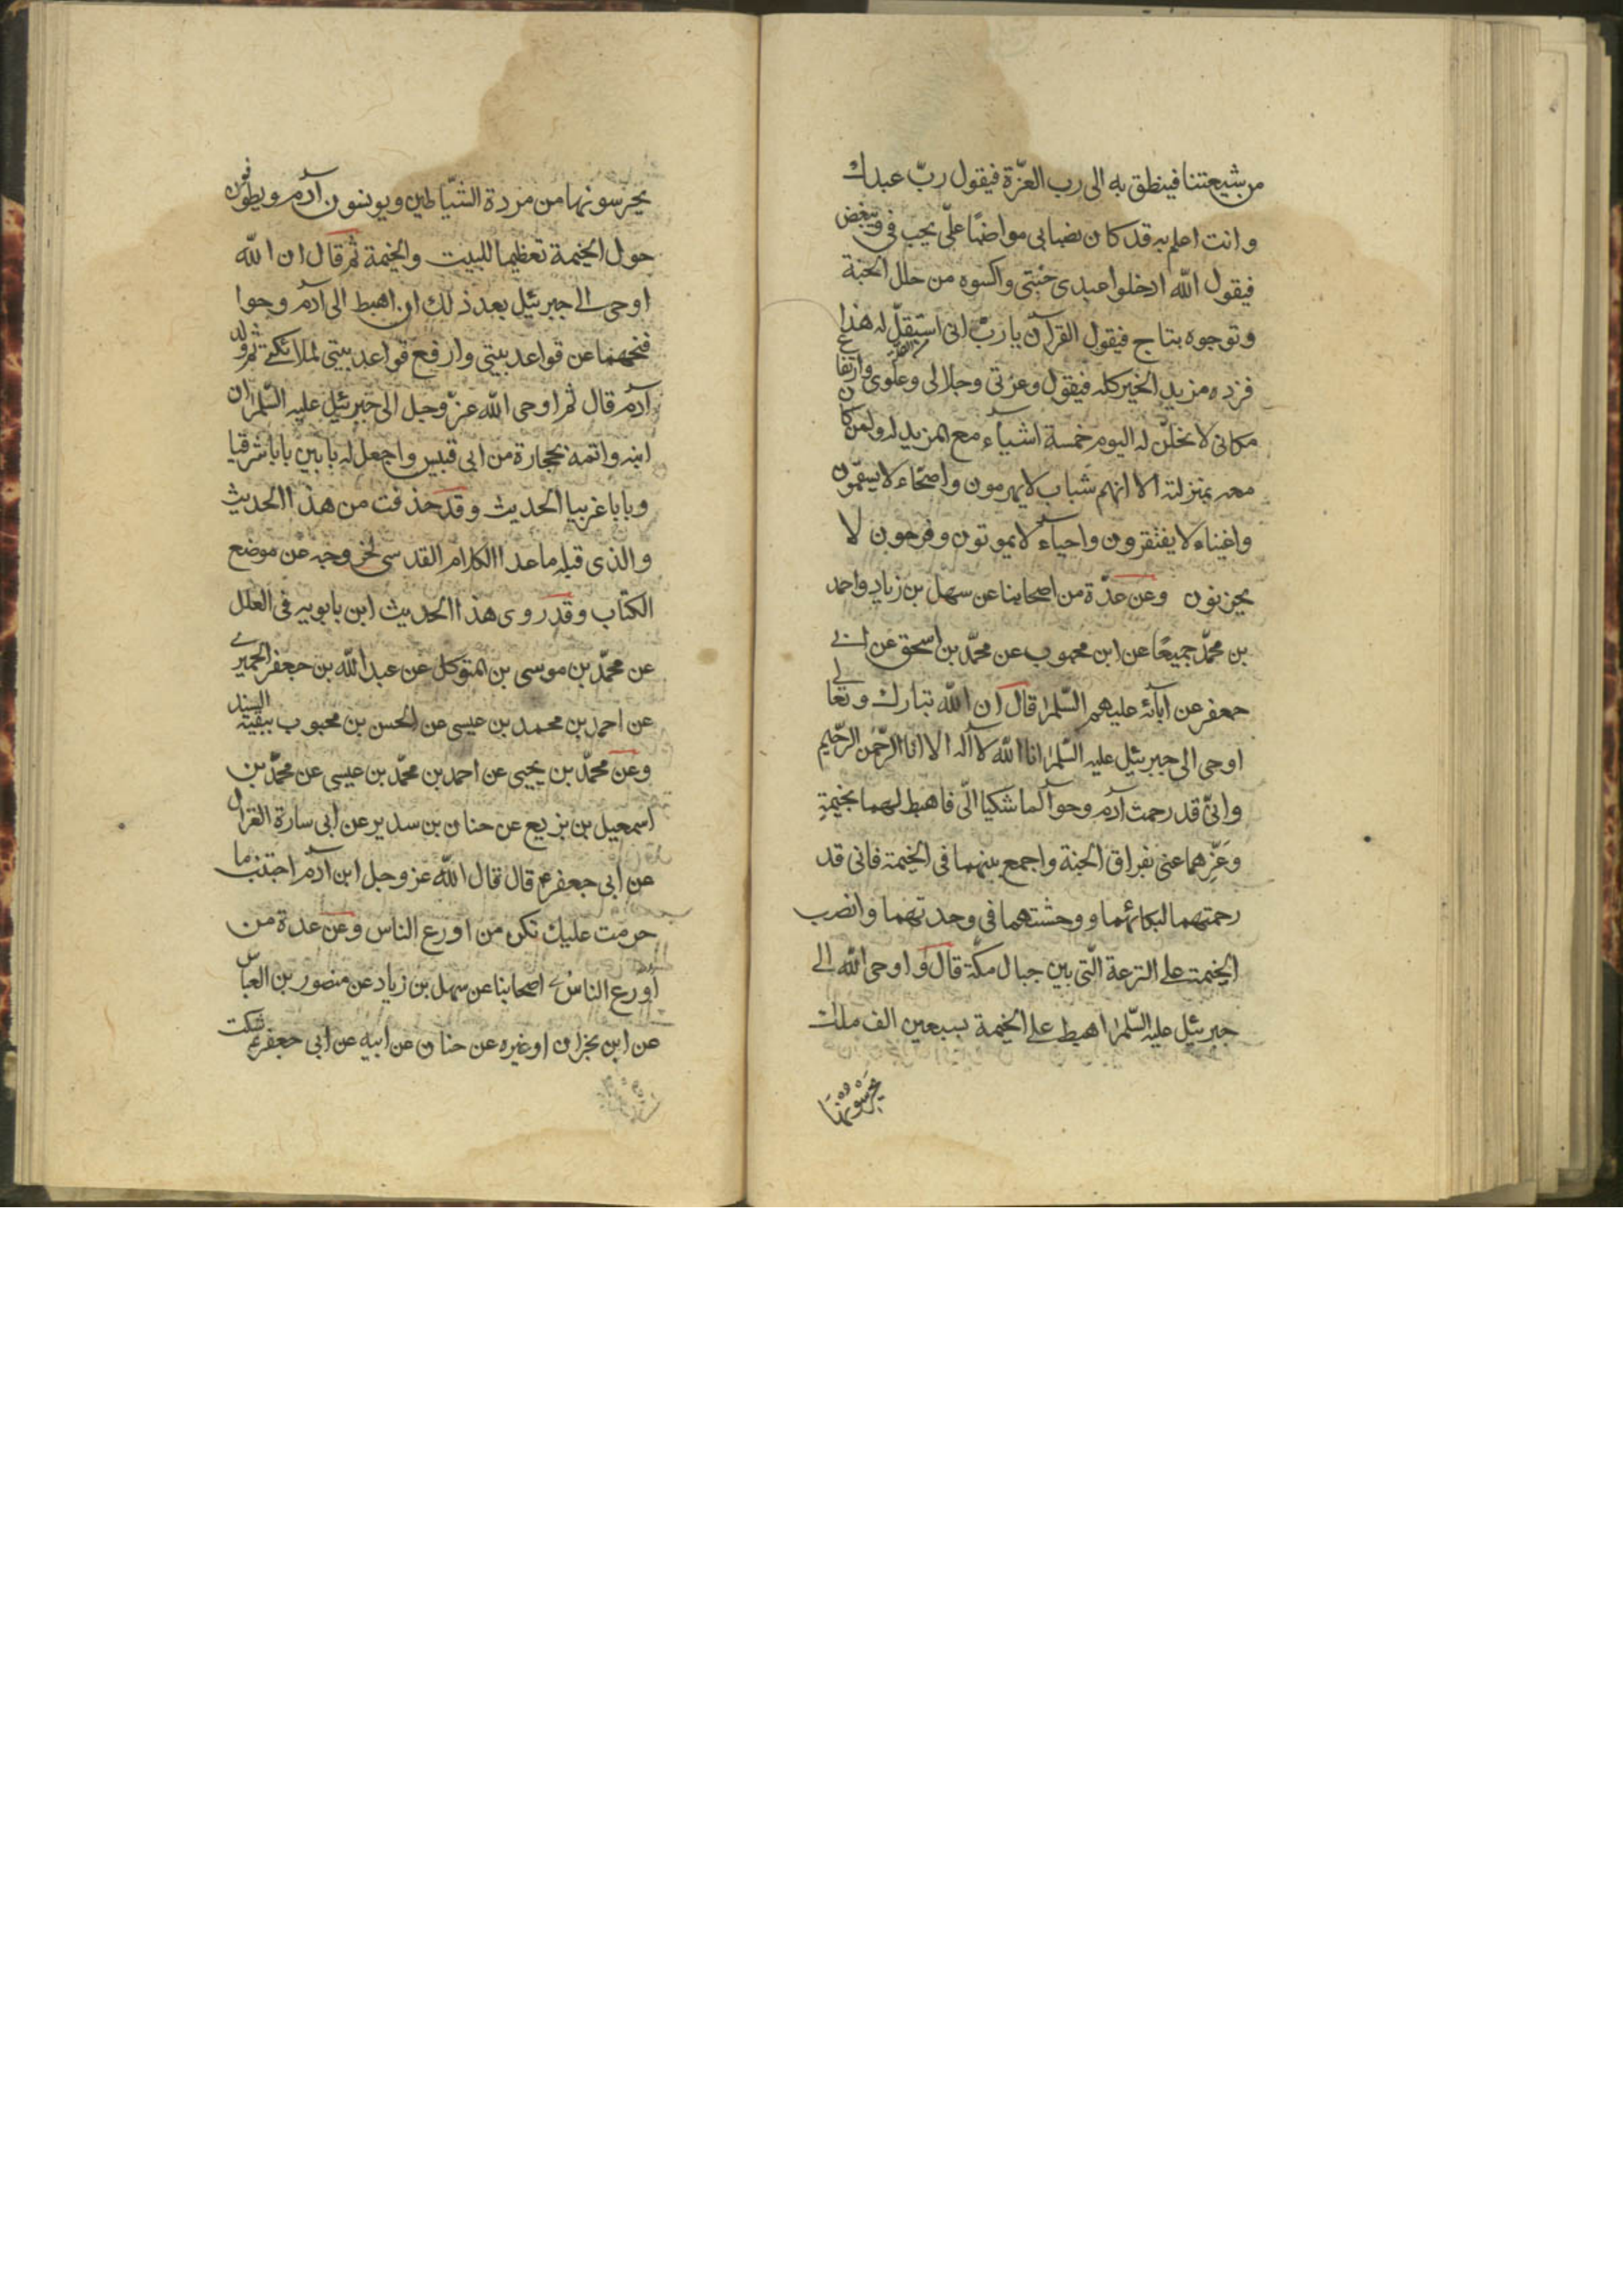 من شيعتنا فينطلق به الى رب العزّة فيقول ربّ عبدك
وانت اعلم به قد كان نصبا بى مواضبًا علّى يحب فىّ ويبغض
فيقول الله ادخلوا عبدى جنتى واكسوه من حلل الجنة
وتوجوه بتاج فيقول القرآن يا ربّ انى استقلّ له هذا
فزده مزيد الخير كله فيقول وعزتى وجلالى وعلوى وارتفاع
مكانى لانحلنّ له اليوم خمسة اشياء مع المزيد له ولمن كان
معه بمنزلته الا انهم شباب لا يهرمون واصحّاء لا يسقمون
واغنياء لا يفتقرون واحياء لا يموتون وفرحون لا
يحزنون وعن عدّة من اصحابنا عن سهل بن زياد واحمد
بن محمّد جميعًا عن ابن محبوب عن محمّد بن اسحق عن ابى
جعفر عن آبائه عليهم السّلم قال ان الله تبارك وتعالى
اوحى الى جبرئيل عليه السّلم انا الله لا اله الا انا الرّحمن الرّحيم
وانّى قد رحمت آدم وحوّا لما شكيا الىّ فاهبط لهما بخيمةٍ
وعَزِّهما عنى بفراق الجنة واجمع بينهما فى الخيمة فانى قد
رحمتهما لبكائهما ووحشتهما فى وحدتهما وانصب
الخيمة على الترعة الّتى بين جبال مكّة قال واوحى الله الى
جبرئيل عليه السّلم اهبط على الخيمة بسبعين الف ملك
يحرسونها
يحرسونها من مردة الشّياطين ويونسون آدم ويطوفون
حول الخيمة تعظيما للبيت والخيمة ثم قال ان الله
اوحى الى جبرئيل بعد ذلك ان اهبط الى آدم وحوا
فنحهما عن قواعد بيتى وارفع قواعد بيتى لملائكتى ثم ولد
آدم قال ثم اوحى الله عزّ وجل الى جبرئيل عليه السّلم ان
ابنه واتمه بحجارة من ابى قبيس واجعل له بابين بابا شرقيا
وبابا غربيا الحديث وقد حذفت من هذا الحديث
والذى قبله ما عدا الكلام القدسى لخروجه عن موضع
الكتاب وقد روى هذا الحديث ابن بابويه فى العلل
عن محمّد بن موسى بن المتوكل عن عبد الله بن جعفر الحميرى
عن احمد بن محمد بن عيسى عن الحسن بن محبوب ببقية السند
وعن محمّد بن يحيى عن احمد بن محمّد بن عيسى عن محمّد بن
اسمعيل بن بزيع عن حنان بن سدير عن ابى سارة الغزال
عن ابى جعفر ع قال قال الله عز وجل ابن آدم اجتنب ما
حرمت عليك تكن من اورع الناس وعن عدة من
اورع الناس اصحابنا عن سهل بن زياد عن منصور بن العباس
عن ابن نجران او غيره عن حنان عن ابيه عن ابى جعفر ع شكت